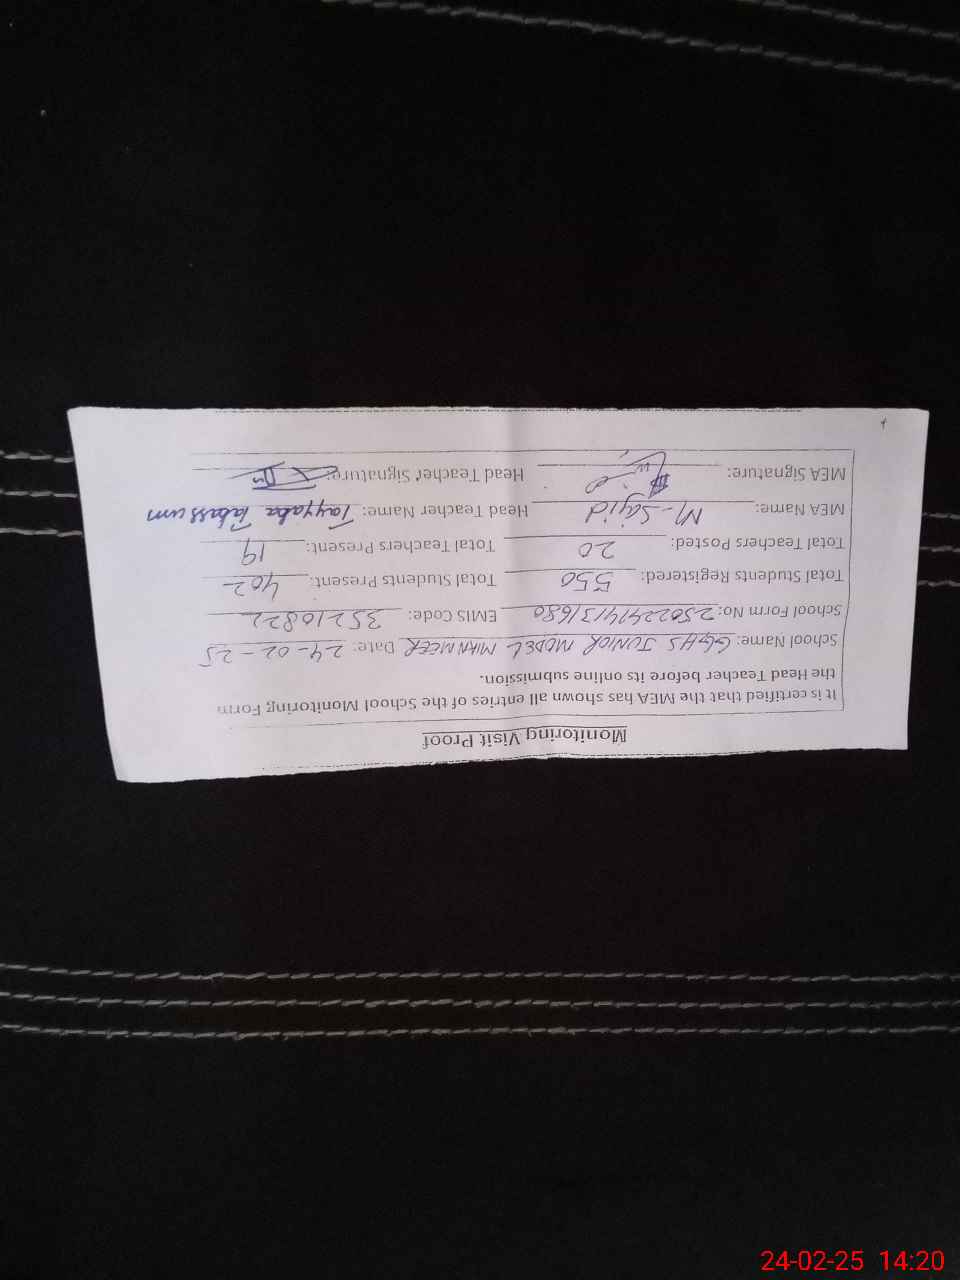 Monitoring Visit Proof
It is certified that the MEA has shown all entries of the School Monitoring Form
the Head Teacher before its online submission.
School Name: GGHS JUNIOR MODEL MIAN MEER Date: 24-02-25
School Form No: EMIS Code: 35210822
Total Students Registered: 550 Total Students Present: 402
Total Teachers Posted: 20 Total Teachers Present: 19
MEA Name: M-Sajid Head Teacher Name: Tayyaba Tabassum
MEA Signature: Head Teacher Signature:
24-02-25 14:20